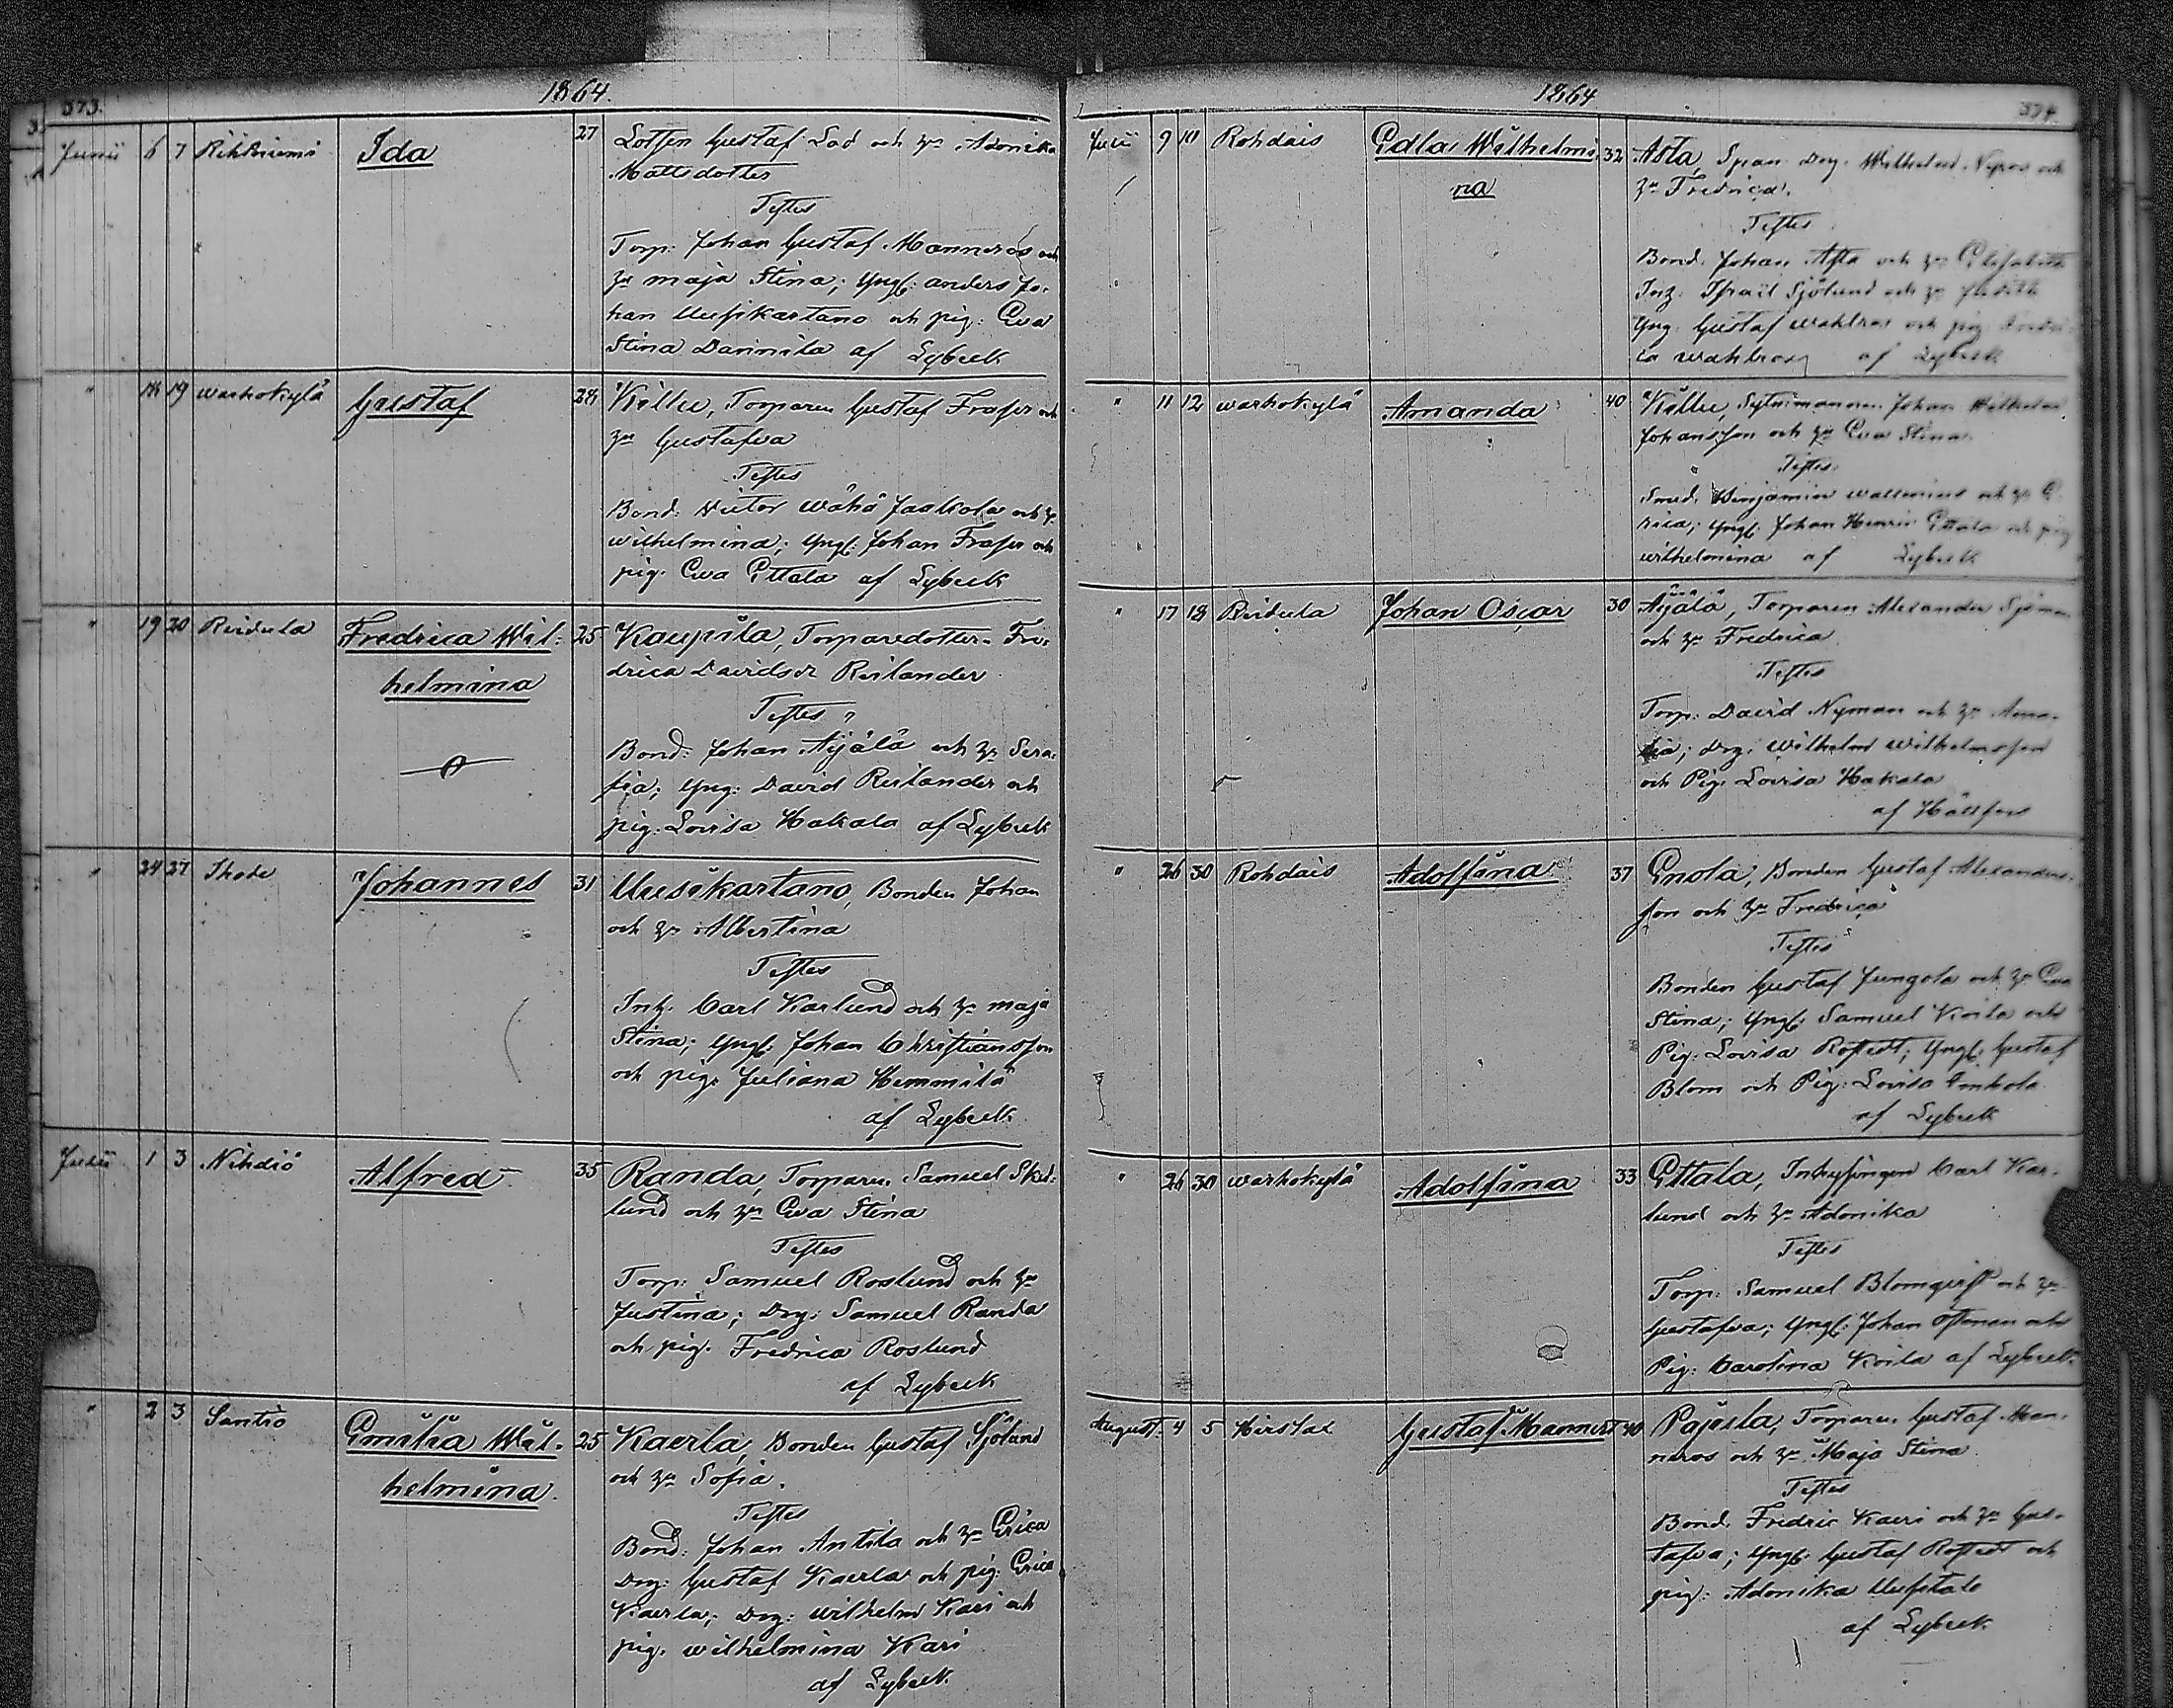 373.
1864.
Junii 6 7 Ida 27 Lotsen Gustaf Lod och h:u Adonika
Mattsdotter
Testes
Torp: Johan Gustaf Manneros och
h:u Maja Stina; Yngl: Anders Jo-
han Uusikartano och pig: Eva
Stina Dannila af Lybeck
" 18 19 warhokylä Gustaf 28 Killu, Torparen Gustaf Fraser och
h:u Gustafva
Testes
Bond: Victor Wähä Jaakola och h:u
Wilhelmina; Yngl: Johan Fraser och
pig. Eva Ettala af Lybeck
" 19 20 Reidula Fredrica Wil- 25 Kaupila, Torparedotter Fre-
helmina drica Davidsdr Reilander
Testes
Bond: Johan Äijälä och h:u Sera-
fia; Yng: David Reilander och
pig: Lovisa Hakala af Lybeck
" 24 27 Ihode Johannes 31 Uusikartano, Bonden Johan
och h:u Albertina
Testes
Inh. Carl Karlund och h:u Maja
Stina; Yngl: Johan Christiansson
och pig. Juliana Hemmilä
af Lybeck
Julii 1 3 Nihdiö Alfred 35 Randa, Torparen Samuel Sked-
lund och h:u Eva Stina
Testes
Torp: Samuel Roslund och h:u
Justina; Drg: Samuel Randa
och pig. Fredrica Roslund
af Lybeck
" 2 3 Santio Emilia Wil- 25 Kaerla, Bonden Gustaf Sjölund
helmina och h:u Sofia.
Testes
Bond: Johan Antila och h:u Erica
Drg: Gustaf Kaerla och pig: Erica
Kaerla; Drg: Wilhelm Kari och
pig. Wilhelmina Kari
af Lybeck
1864
374.
Julii 9 10 Rohdais Edla Wilhelmi- 32 Asta, Drg. Wilhelm och
na h:u Fredrica.
Testes
Bond. Johan Asta och h:u Elisabeth
Inh: Israel Sjölund och h:u Judith
Yng: Gustaf Wahlros och pig
Wahlros af Lybeck
" 11 12 warhokylä Amanda 40 Killu, Johan Wilhelm
Johansson och h:u Eva Stina.
Testes
Smed. Benjamin Wallenius och h:u E-
rica; Yngl: Johan Henric Ettala och pig
Wilhelmina af Lybeck
" 17 18 Reidula Johan Oscar 30 Äijälä, Torparen Alexander
och h:u Fredrica
Testes
Torp: David Nyman och h:u Ama-
lia; Drg: Wilhelm Wilhelmsson
och Pig: Lovisa Hakala
af Hällfors
" 26 30 Rohdais Adolfina 37 Gnola, Bonden Gustaf Alexanders-
son och h:u Fredrica
Testes
Bonden Gustaf Jungola och h:u Eva
Stina; Yngl: Samuel Koila och
Pig: Lovisa Rostedt; Yngl: Gustaf
Blom och Pig: Lovisa
af Lybeck
" 26 30 warhokylä Adolfina 33 Ettala, Inhysingen Carl Kar-
lund och h:u Adonika
Testes
Torp: Samuel Blomqvist och h:u
Gustafva; Yngl: Johan Östman och
Pig: Carolina Koila af Lybeck
August. 4 5 Hirslax Gustaf Mannert 40 Pajula, Torparen Gustaf Man-
neros och h:u Maja Stina
Testes
Bond. Fredric Kaeri och h:u Gus-
tafva; Yngl: Gustaf Rostedt och
pig: Adonika Uusitalo
af Lybeck